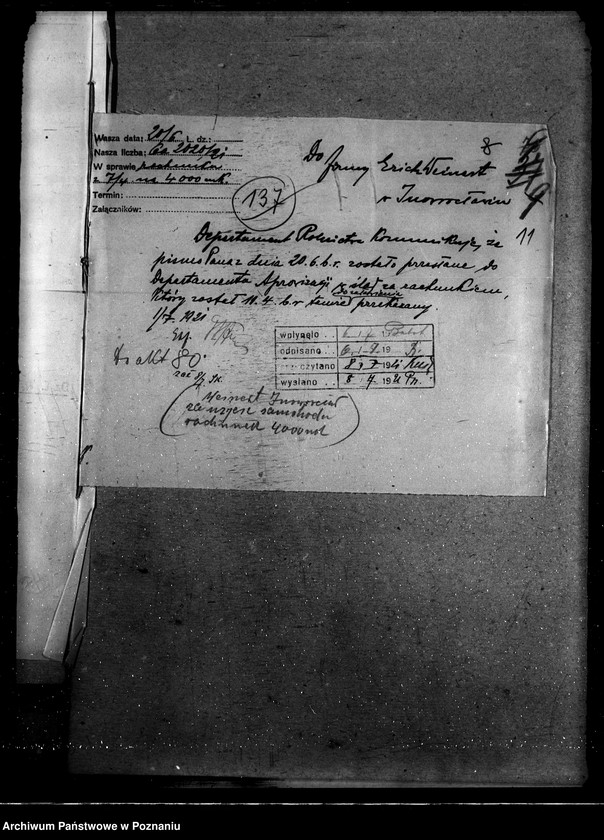 Wasza data: 20/6 L. dz.:
Nasza liczba:
W sprawie rachunku
z 7/4 na 4000 mk.
Termin:
Załączników:
137
8
Do firmy Erich Weinert
w Inowrocławiu
11
Departament Rolnictwa komunikuje, że
pismo Pana z dnia 20.6.b.r. zostało przesłane do
Departamentu Aprowizacji w ślad za rachunkiem,
który został 11.4.b.r. tamże przekazany.
do załatwienia
1/7 1921
Do akt 80.
wpłynęło
odpisano
czytano 8 7 1921
wysłano 8 7 1921
Weinert Inowrocław
za użycie samochodu
rachunek 4000 mk
Archiwum Państwowe w Poznaniu